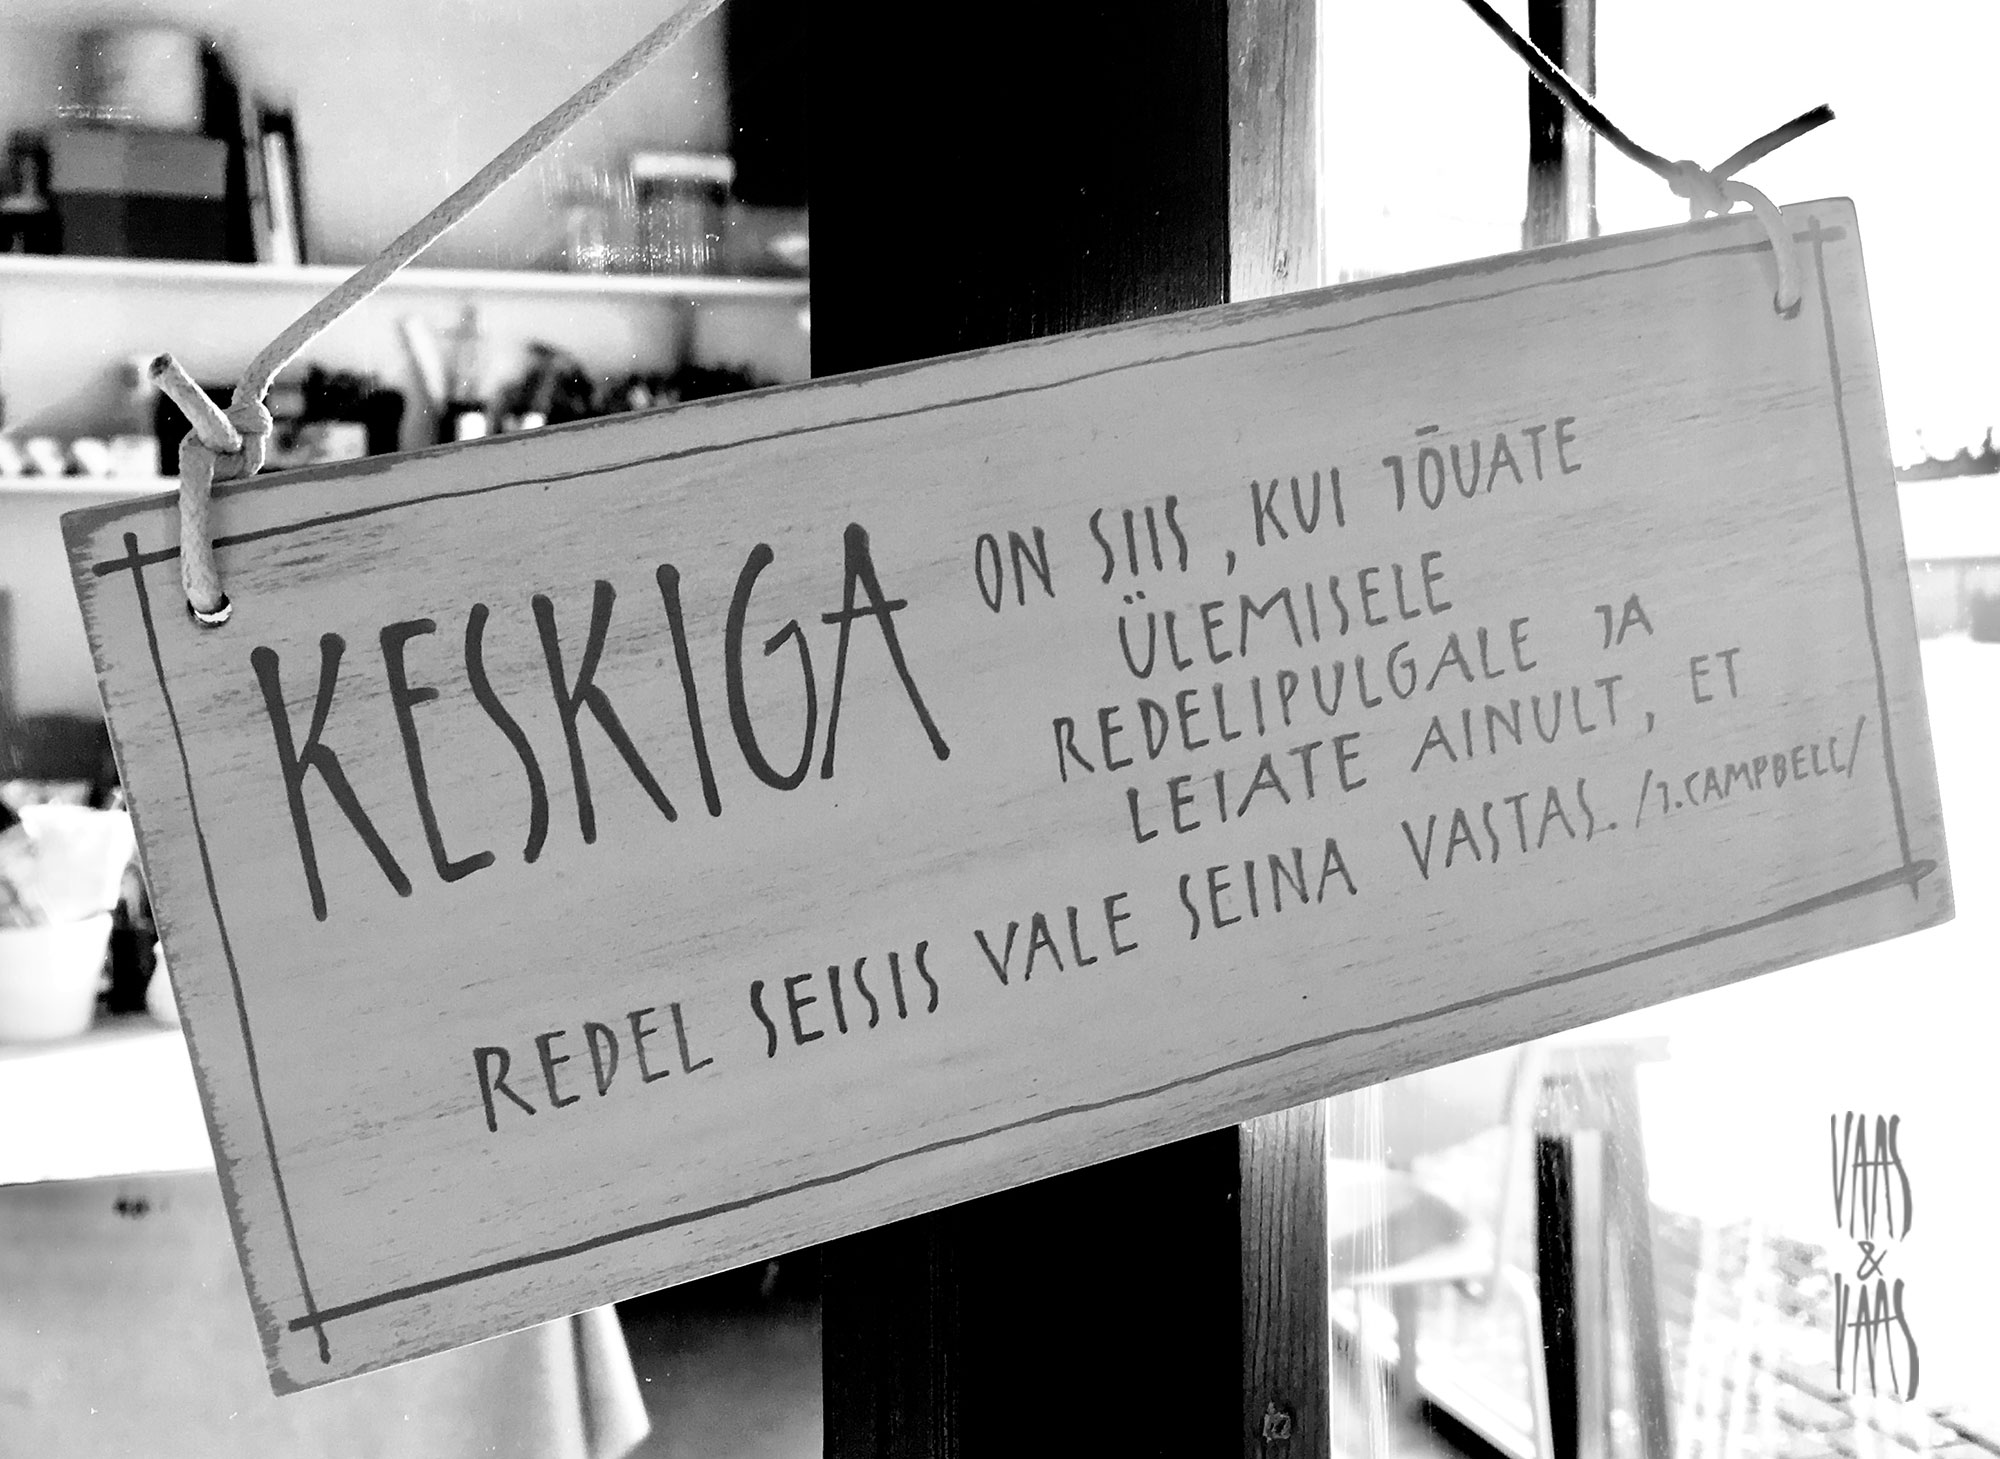 KESKIGA ON SIIS, KUI JÕUATE
ÜLEMISELE
REDELIPULGALE JA
LEIATE AINULT, ET
REDEL SEISIS VALE SEINA VASTAS. /J.CAMPBELL/
VAAS
&
VAAS